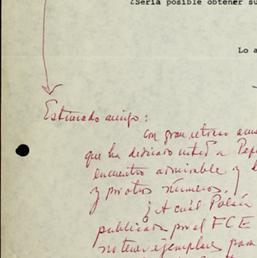 ¿Sería posible obtener su
Lo a
Estimado amigo:
Con gran retraso
que ha dedicado usted a
encuentro admirable y
y otros números.
¿A cuál Poesía
publicada por el FCE
no tener ejemplares para